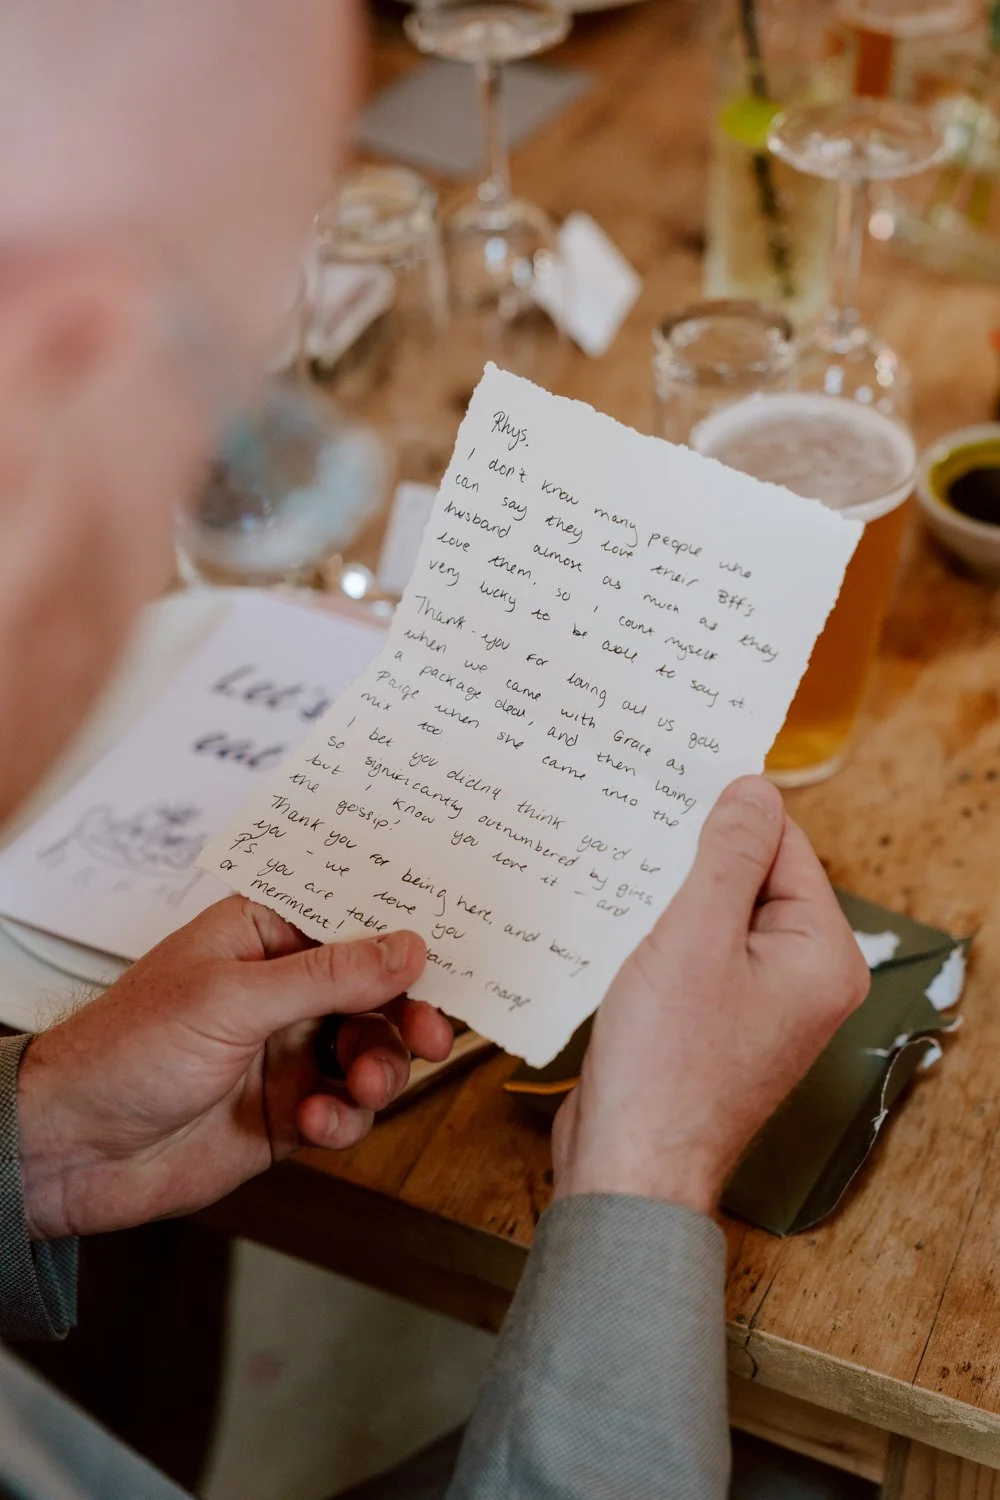 Rhys,
I don't know many people who
can say they love their Bff's
husband almost as much as they
love them, so I count myself
very lucky to be able to say it.
Thank-you for loving all us gals
when we came with Grace as
a package deal, and then loving
Paige when she came into the
mix too
I bet you didn't think you'd be
so significantly outnumbered by girls
but I know you love it - and
the gossip!
Thank you for being here, and being
you - we love you.
P.S. you are table in charge
or merriment!
Let's
eat